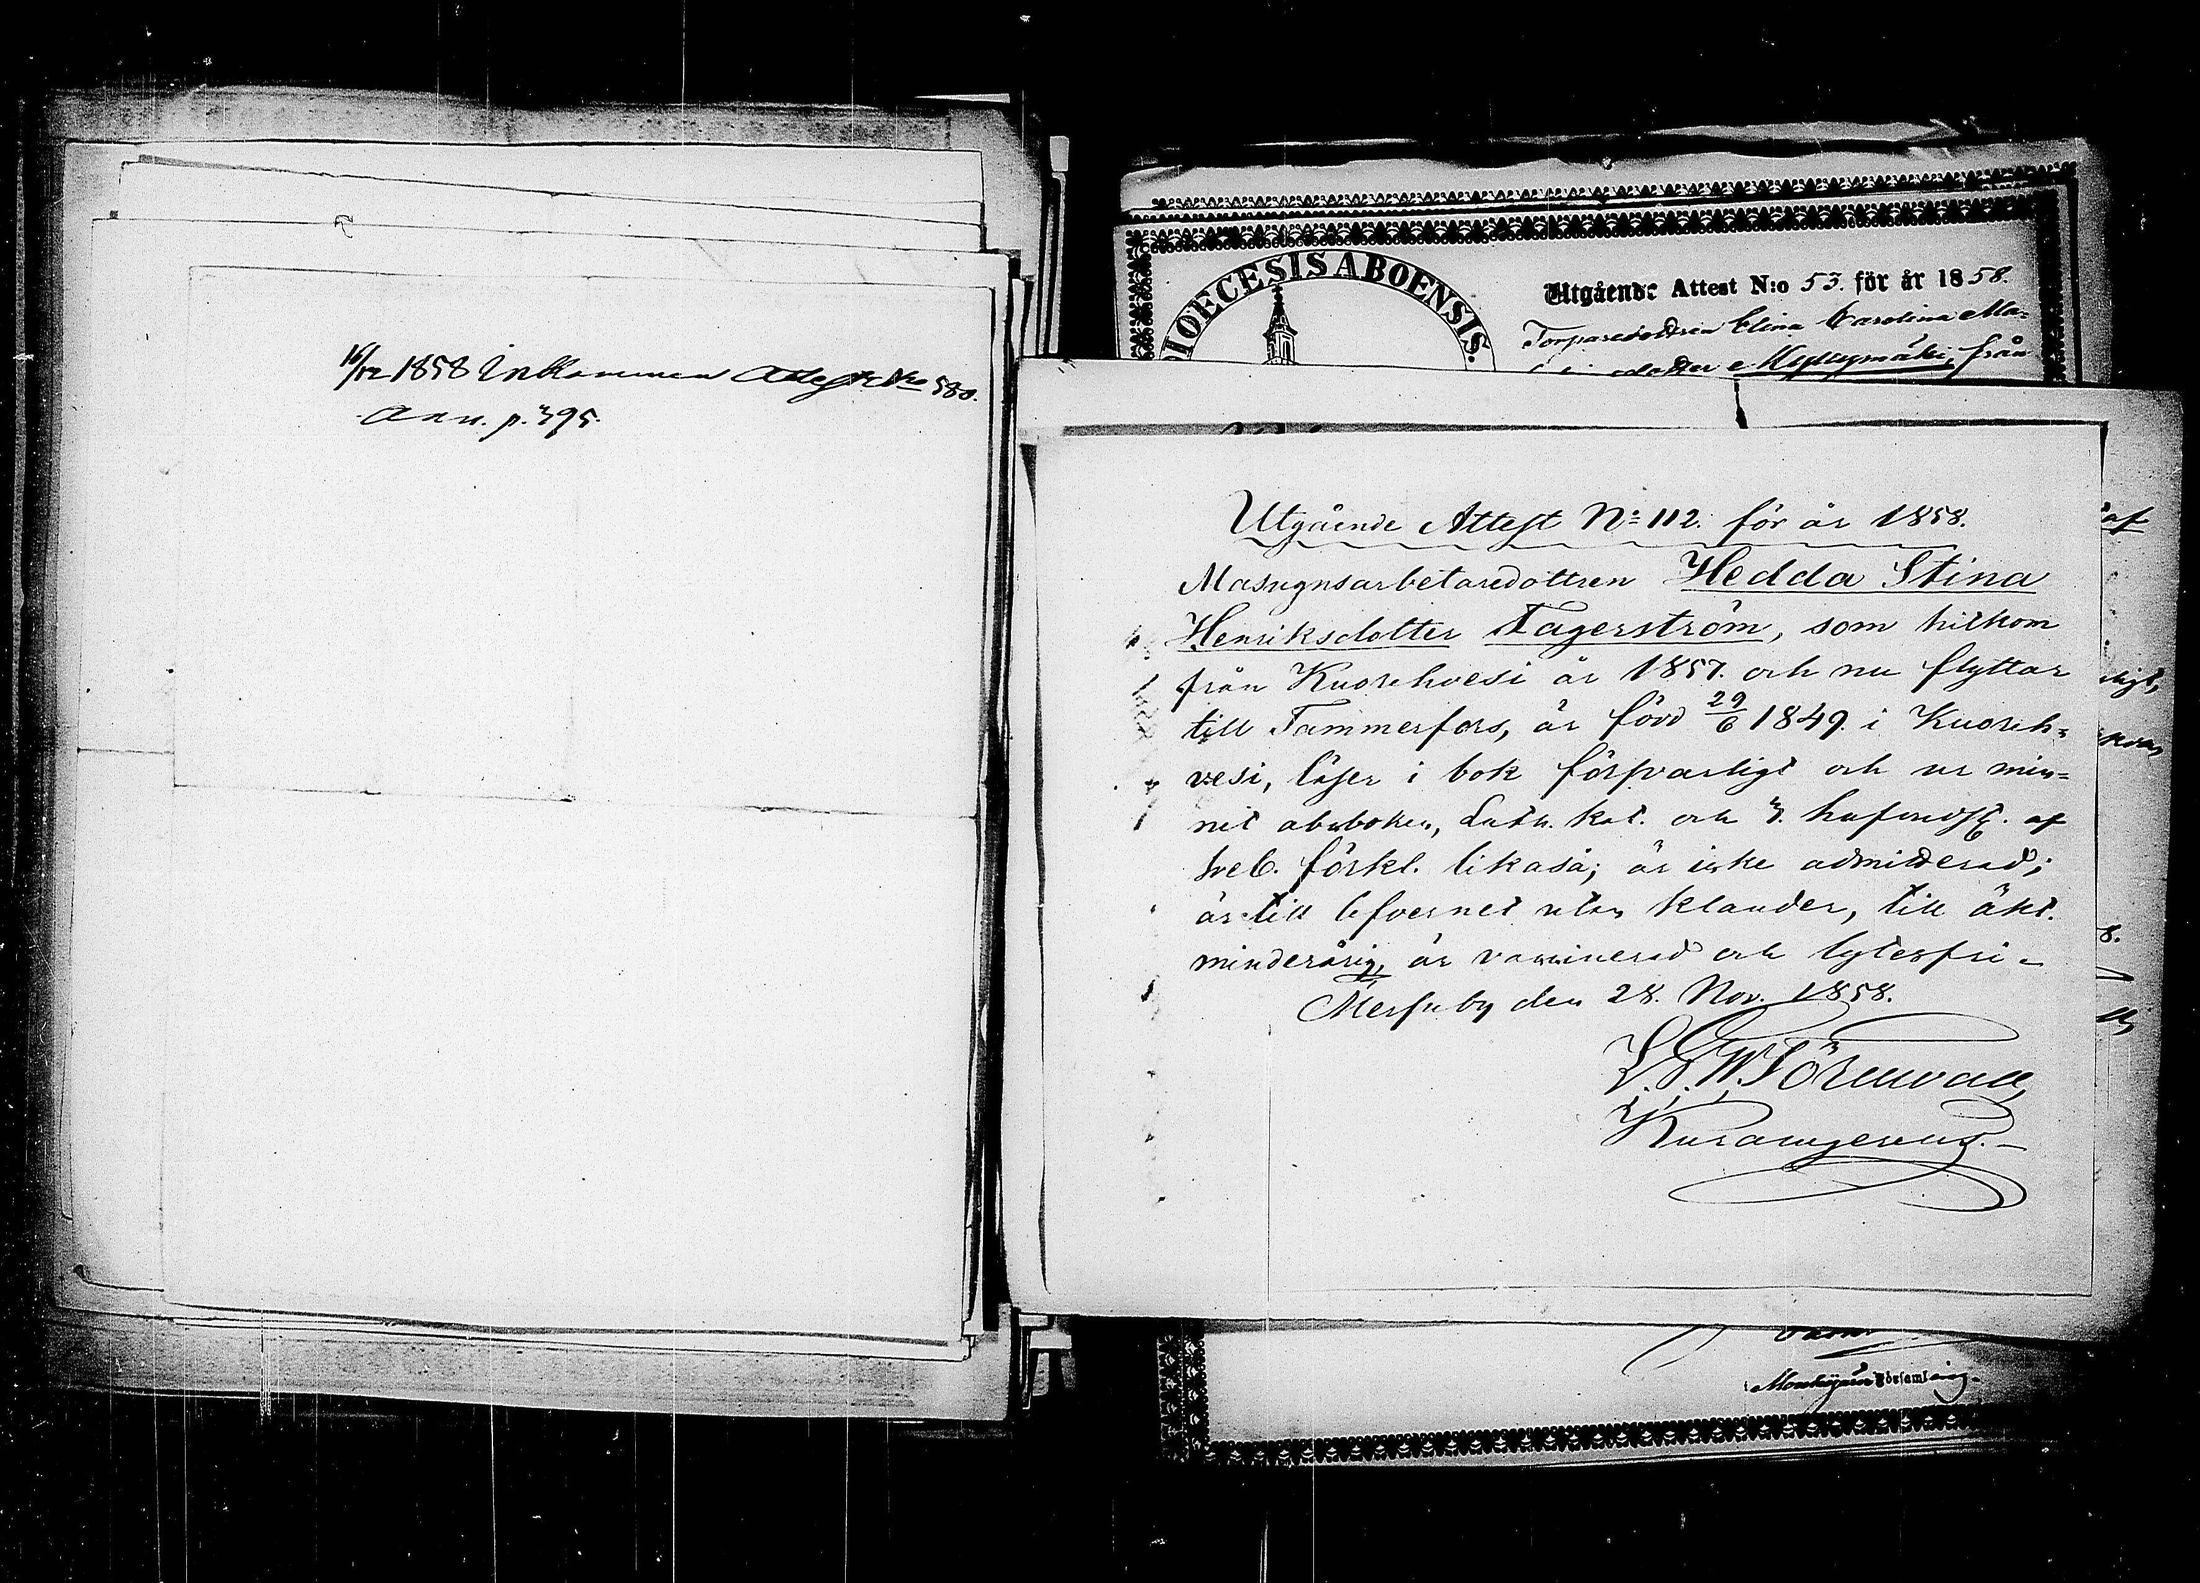 16/12 1858 Inkommen Attest No 580.
Ann. p. 395.
DIOECESIS ABOENSIS.
Utgående Attest N:o 53. för år 1858.
Torparedottren Elina Carolina Ma-
dotter Myllymäki, från
Utgående Attest No 112. för år 1858.
Masugnsarbetaredottren Hedda Stina
Henriksdotter Fagerström, som tillkom
från Kuorehvesi år 1857. och nu flyttar
till Tammerfors, är född 29/6 1849. i Kuoreh=
vesi, läser i bok försvarligt och ur min=
net abcboken, Luth. kat. och 3. hufvudst. af
Sveb. förkl. likaså; är icke admitterad;
är till lefvernet utan klander, till äkt.
minderårig, är vaccinerad och lytesfri.
Messuby den 28. Nov. 1858.
af
ligt,
8.
församling.